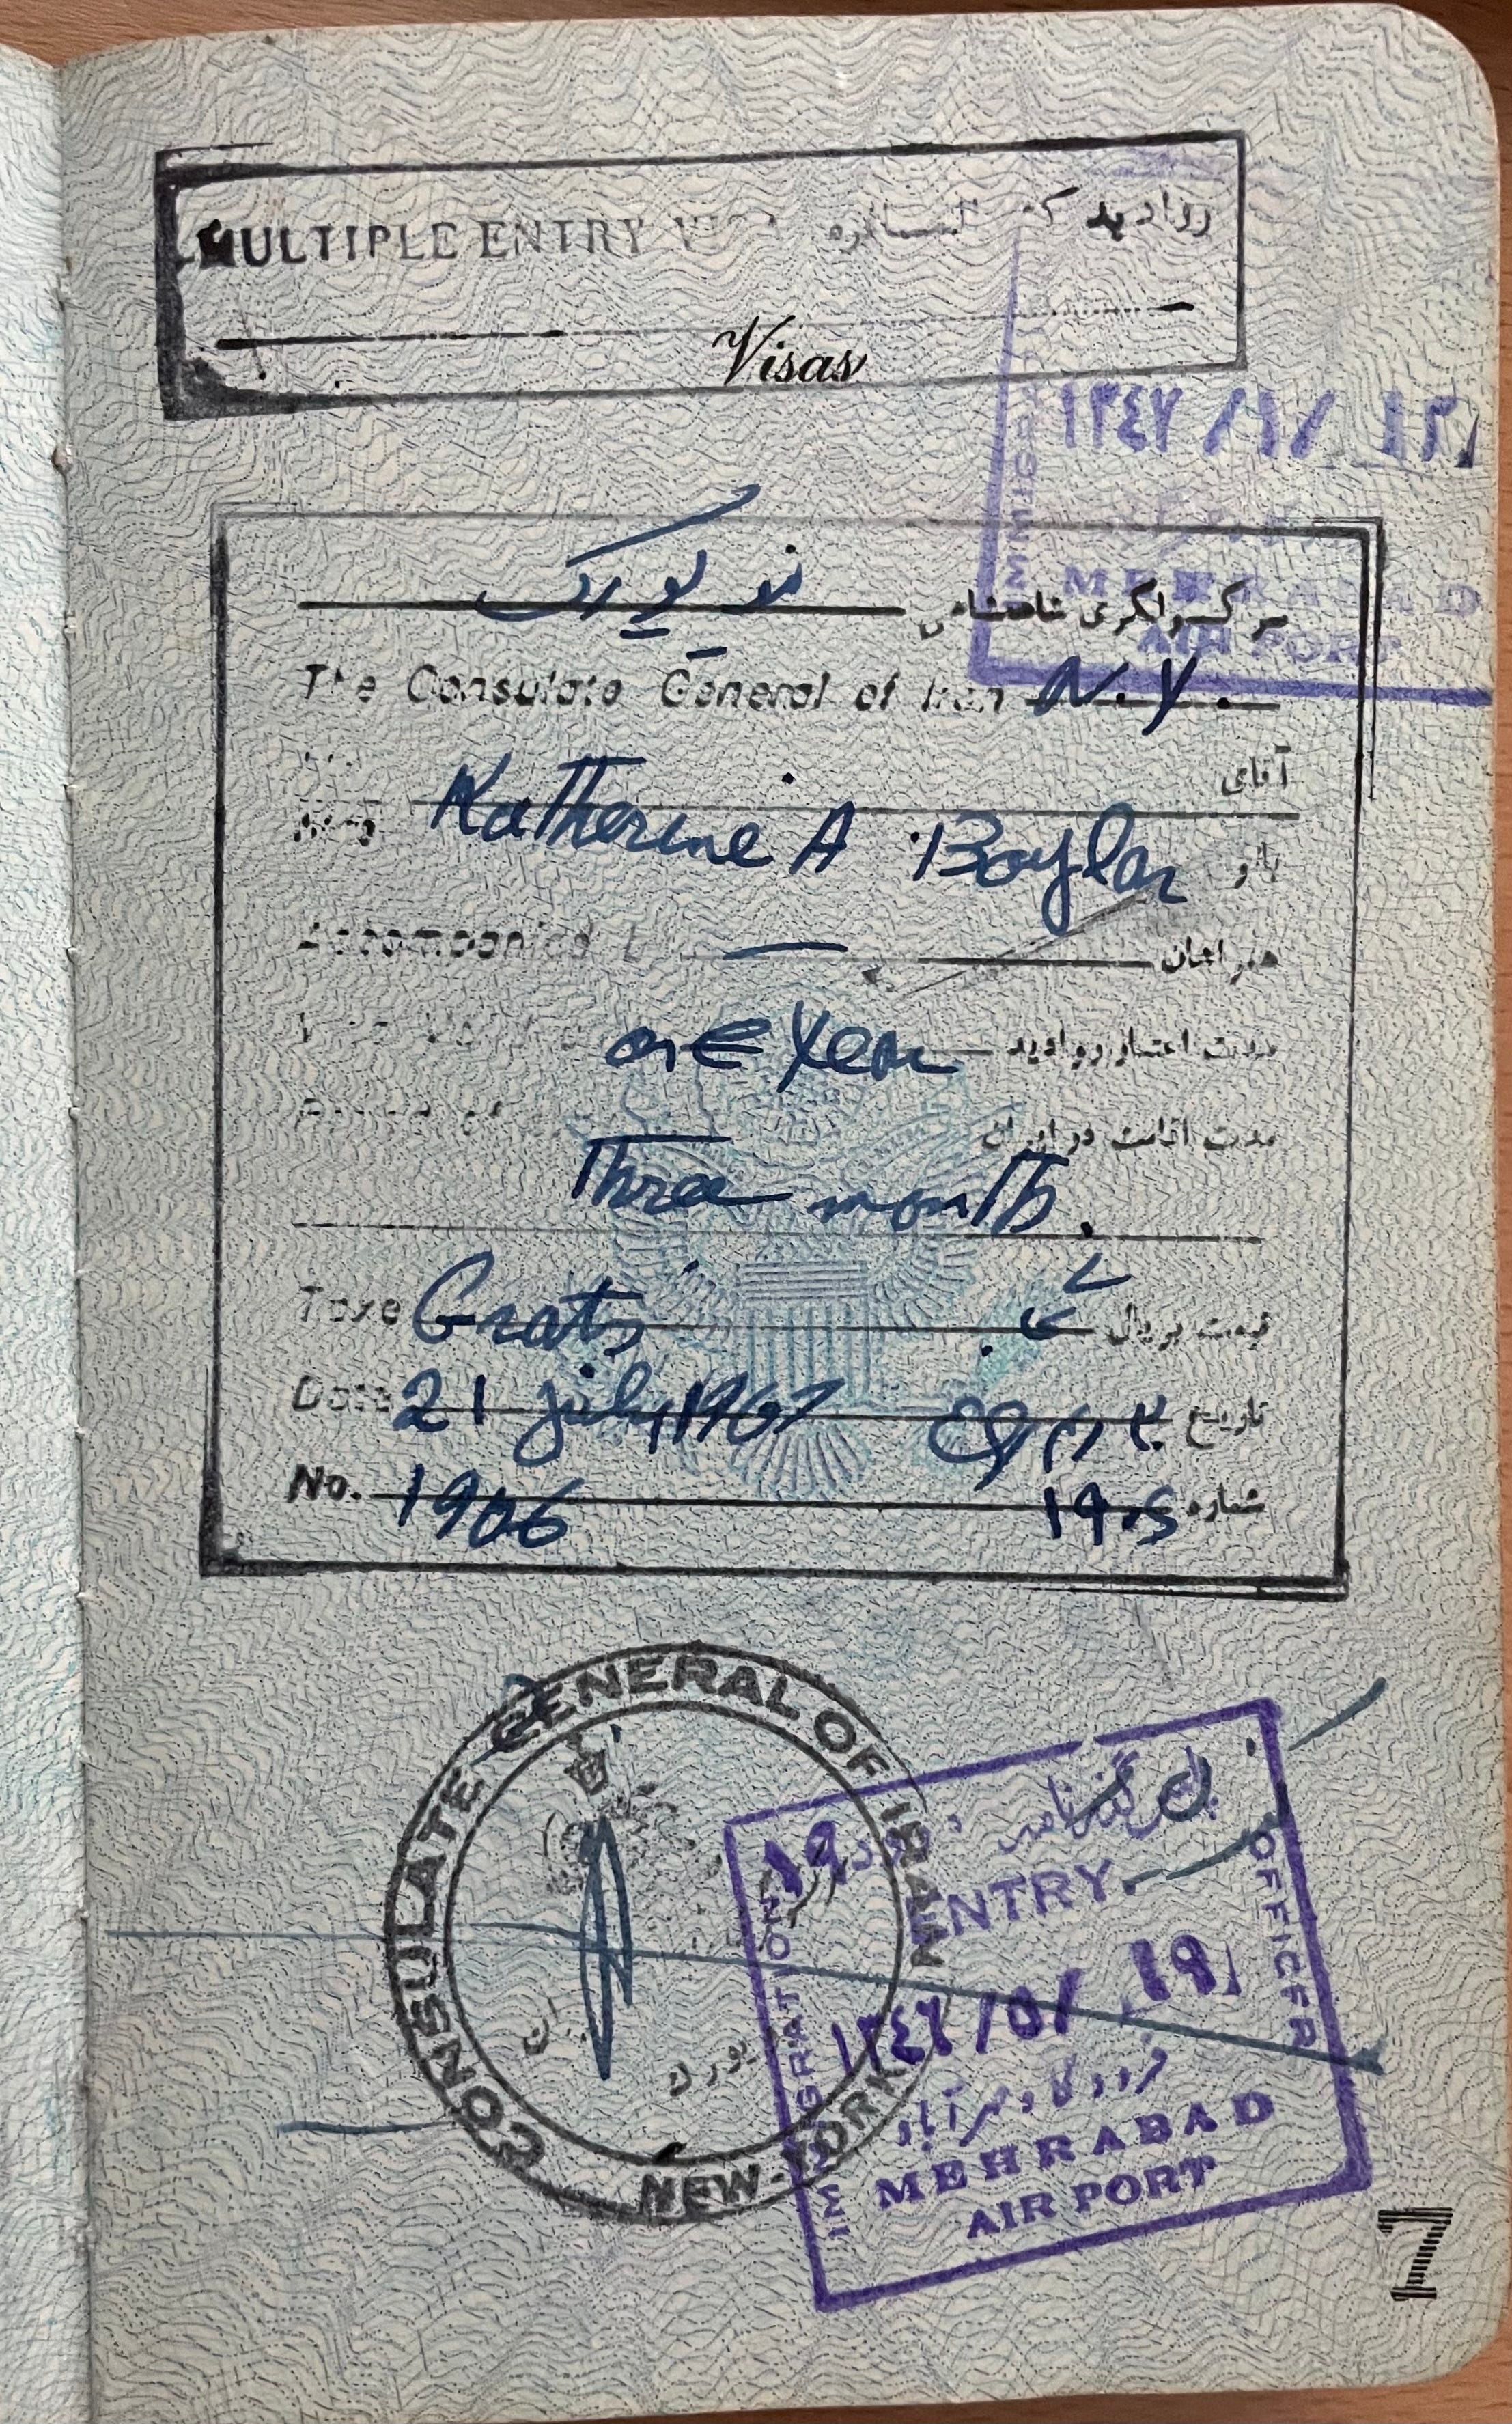 MULTIPLE ENTRY روادید کثیرالمسافره
Visas
۱۳٤۷ /۱/ ۱۲
IMMIGR
MEHRABAD
AIR PORT
سرکنسولگری شاهنشاهی نیویورک
The Consulate General of Iran N.Y.
آقای
Katherine A Boylan
بانو
Accompanied همراهان
one Year مدت اعتبار روادید
Period of مدت اقامت در ایران
Three month.
Taxe Gratis قیمت بریال
Date 21 july, 1967 تاریخ
No. 1906 شماره ۱۹۰۶
CONSULATE GENERAL OF IRAN
NEW-YORK
۱۹
ENTRY
IMMIGRATION OFFICER
۱۳٤٦ /۵/ ۱۹
فرودگاه مهرآباد
MEHRABAD
AIR PORT
7